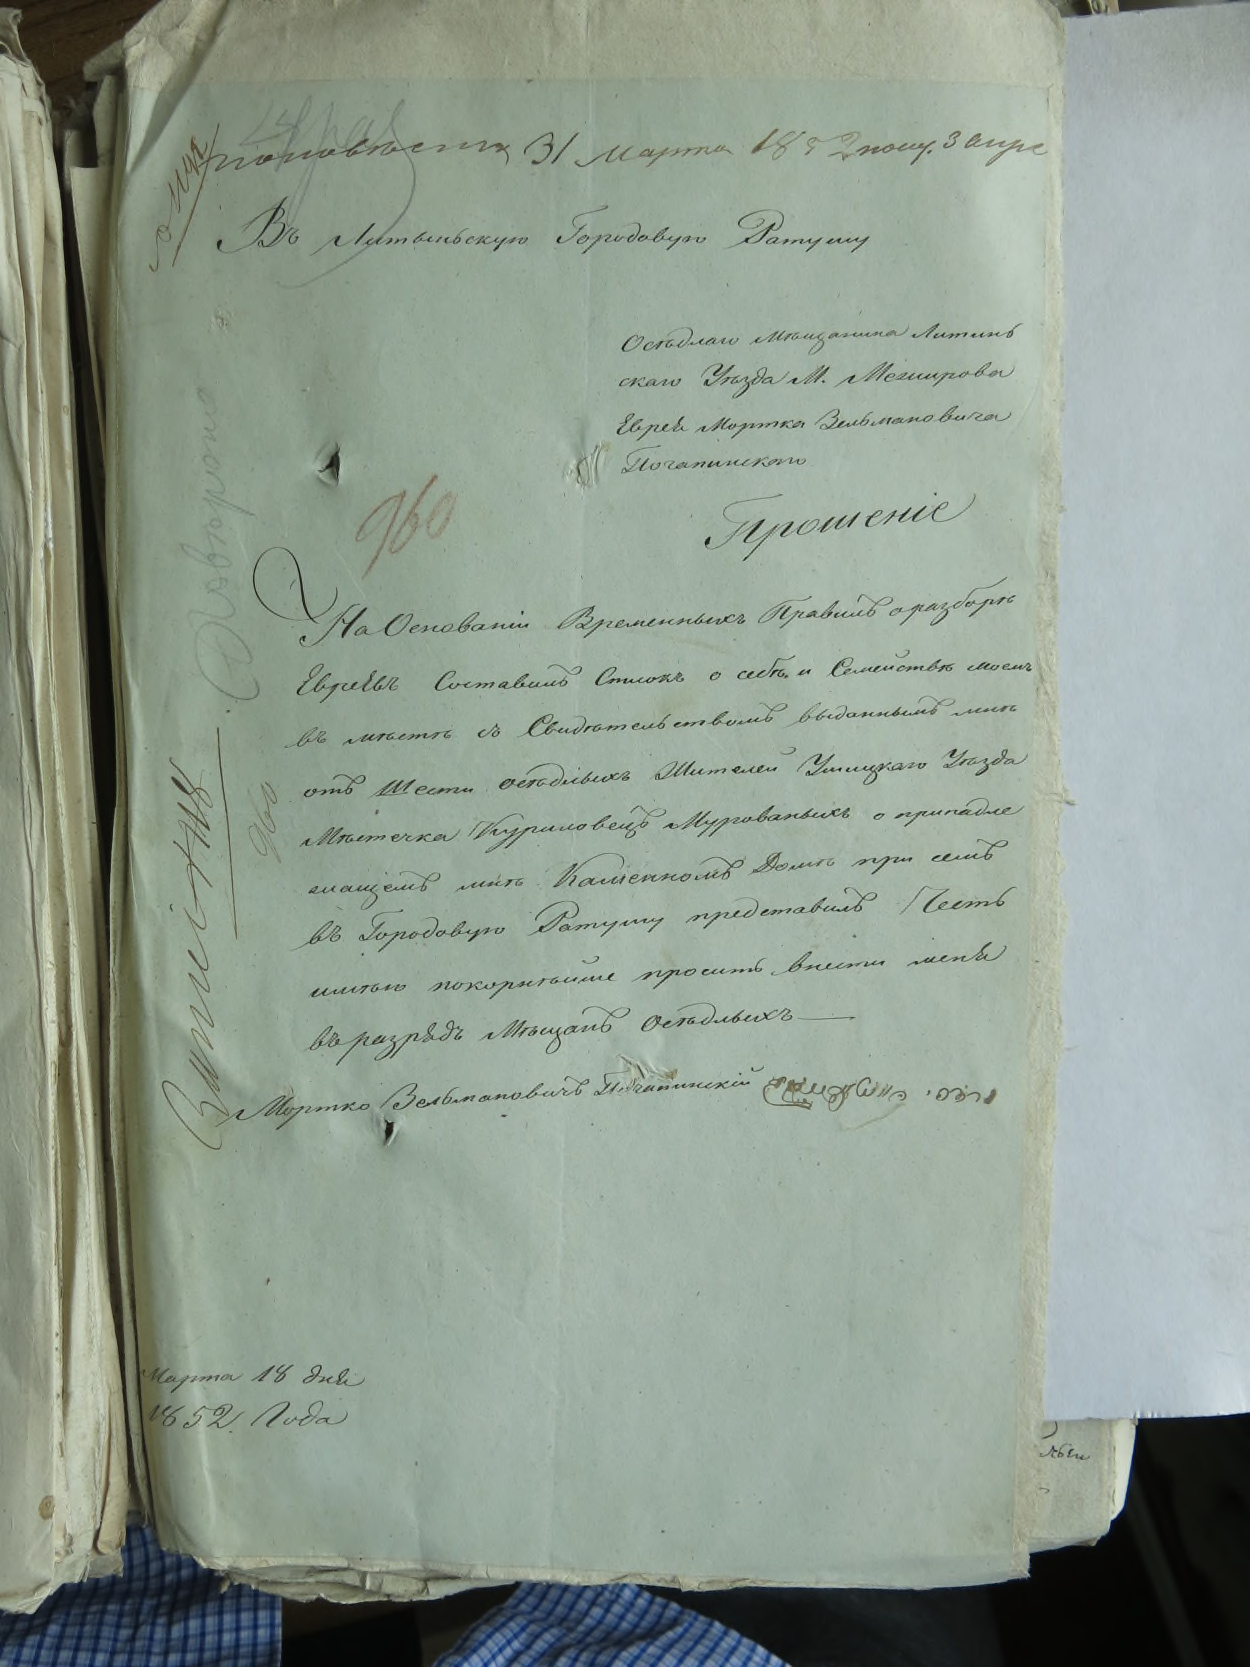 31 Марта 1852 пол. 3 апре
Въ Литынскую Городовую Ратушу
Осѣдлаго Мѣщанина Литинъ
скаго Уѣзда М. Межирова
Еврея Мортка Зельмановича
Почапинскаго
960
Прошеніе
На Основаніи Временныхъ Правилъ о разборѣ
Евреевъ Составилъ Списокъ о себѣ и Семействѣ моемъ
въ мѣстѣ съ Свидѣтельствомъ выданнымъ мнѣ
отъ Шести осѣдлыхъ Жителей Ушицкаго Уѣзда
Мѣстечка Куриловецъ Мурованыхъ о принадле
жащемъ мнѣ Каменномъ Домѣ при семъ
въ Городовую Ратушу представилъ Честь
имѣю покорнѣйше просить внести меня
въ разрядъ Мѣщанъ Осѣдлыхъ
Мортко Зельмановичъ Почапинскій
960
Марта 18 дня
1852 Года